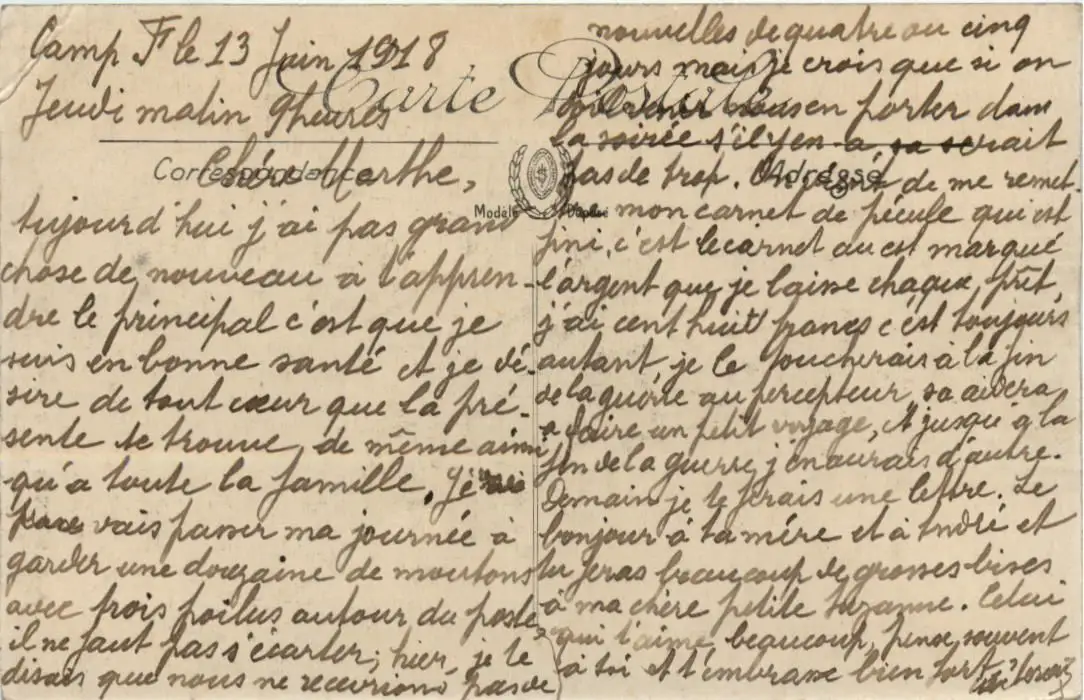 Camp F le 13 Juin 1918
Jeudi matin 9 heures
Carte Postale
Correspondance
Chère Marthe,
aujourd'hui j'ai pas grand
chose de nouveau à t'appren-
dre le principal c'est que je
suis en bonne santé et je dé-
sire de tout cœur que la pré-
sente te trouve, de même ainsi
qu'a toute la famille. Je
vais passer ma journée à
garder une douzaine de moutons
avec trois poilus autour du poste,
il ne faut pas s'écarter; hier, je te
disais que nous ne recevrions pas de
nouvelles de quatre ou cinq
jours mais je crois que si on
nous en porter dans
la soirée s'il y en a sa serait
pas de trop. On vient de me remet-
Adresse
Modèle Déposé
tre mon carnet de pécule qui est
fini, c'est le carnet au est marqué
l'argent que je laisse chaque prêt,
j'ai cent huit francs c'est toujours
autant, je le toucherais à la fin
de la guerre au percepteur, sa aidera
a faire un petit voyage, et jusqu'a la
fin de la guerre j'en aurais d'autre.
Demain je te ferais une lettre. Le
bonjour à ta mére et à André et
tu feras beaucoup de grosses bises
à ma chère petite Suzanne. Celui
qui t'aime beaucoup, pense, souvent
à toi et t'embrasse bien fort